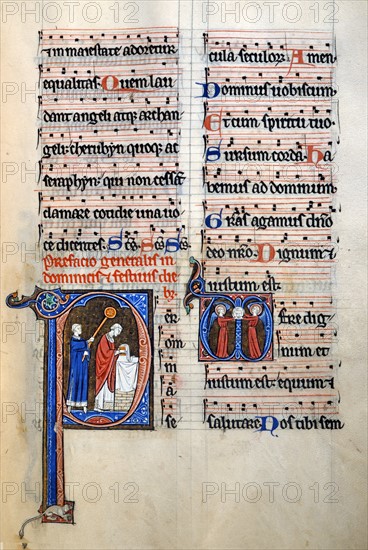 et in maiestate adoretur
equalitas. Quem lau
dant angeli atq; archan
geli: cherubyn quoq; at
seraphyn: qui non cessāt
clamare cotidie una uo
ce dicentes. Sc̄s. Sc̄s. Sc̄s.
Prefacio generalis in
dominicis & festiuis die
b;
P
er om
nia
se
cula seculoꝝ. Amen
Dominus uobiscum.
Et cum spiritu tuo.
Sursum corda. Ha
bemus ad dominum.
Grās agamus dn̄o
deo nr̄o. Dignum &
iustum est.
U
ere dig
num et
iustum est: equum &
salutare. Nos tibi sem
PHOTO 12